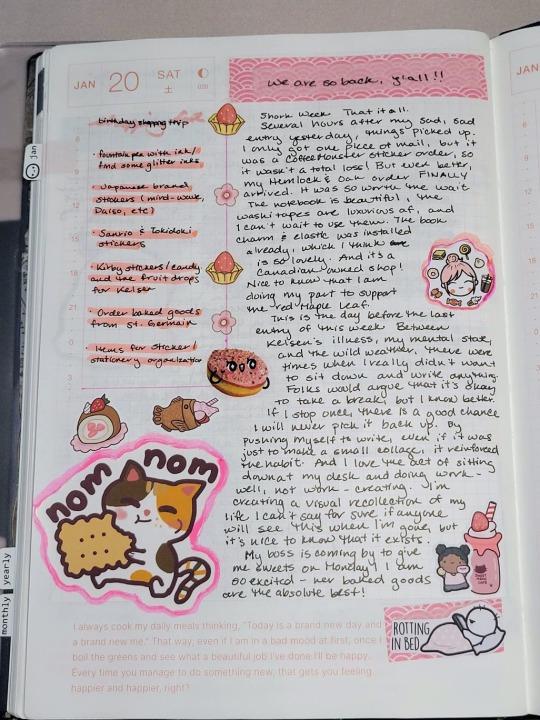 JAN 20 SAT
土
we are so back, y'all!!
birthday shopping trip
· fountain pen with ink/
find some glitter inks
· Japanese brand
stickers (mind-wave,
Daiso, etc)
· Sanrio & Tokidoki
stickers
· Kirby stickers/candy
and the fruit drops
for Kelsen
· Order baked goods
from St. Germain
· Items for sticker/
stationery organization
Shork Week. That it all.
Several hours after my sad, sad
entry yesterday, things picked up.
I only got one piece of mail, but it
was a CoffeeMonster sticker order, so
it wasn't a total loss! But even better,
my Hemlock & Oak order FINALLY
arrived. It was so worth the wait
The notebook is beautiful, the
washi tapes are luxurious af, and
I can't wait to use them. The book
charm & elastic was installed
already, which I think
is so lovely. And it's a
Canadian owned shop!
Nice to know that I am
doing my part to support
the red Maple Leaf.
This is the day before the last
entry of this week. Between
Kelsen's illness, my mental state,
and the wild weather, there were
times when I really didn't want
to sit down and write anything.
Folks would argue that it's okay
to take a break, but I know better.
If I stop once, there is a good chance
I will never pick it back up. By
pushing myself to write, even if it was
just to make a small collage, it reinforced
the habit. And I love the act of sitting
down at my desk and doing work -
well, not work - creating. I'm
creating a visual recollection of my
life. I can't say for sure if anyone
will see this when I'm gone, but
it's nice to know that it exists.
My boss is coming by to give
me sweets on Monday! I am
so excited - her baked goods
are the absolute best!
nom nom
ROTTING
IN BED
I always cook my daily meals thinking, "Today is a brand new day and
a brand new me." That way, even if I am in a bad mood at first, once I
boil the greens and see what a beautiful job I've done I'll be happy.
Every time you manage to do something new, that gets you feeling
happier and happier, right?
jan
monthly yearly
JAN